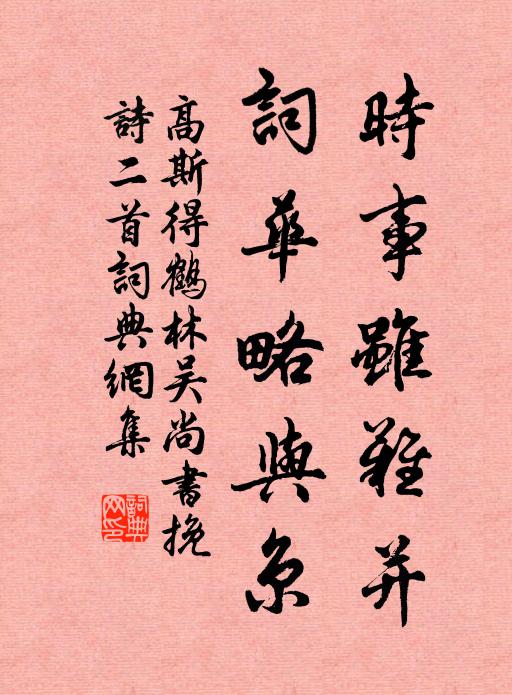 時事雖難并
詞華略與京
高斯得鶴林吳尚書挽
詩二首詞典網集
詞典
网印